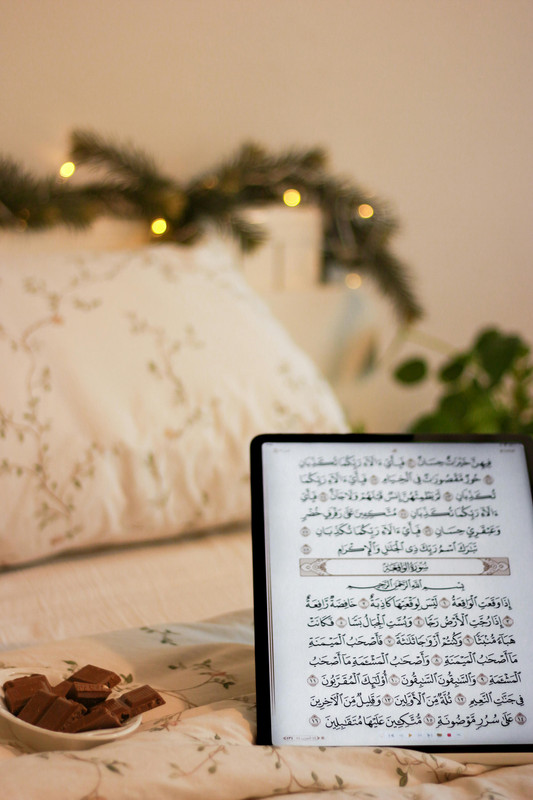 فِيهِنَّ خَيْرَٰتٌ حِسَانٌ ٧٠ فَبِأَيِّ ءَالَآءِ رَبِّكُمَا تُكَذِّبَانِ
٧١ حُورٌ مَّقْصُورَٰتٌ فِي ٱلْخِيَامِ ٧٢ فَبِأَيِّ ءَالَآءِ رَبِّكُمَا
تُكَذِّبَانِ ٧٣ لَمْ يَطْمِثْهُنَّ إِنسٌ قَبْلَهُمْ وَلَا جَآنٌّ ٧٤ فَبِأَيِّ
ءَالَآءِ رَبِّكُمَا تُكَذِّبَانِ ٧٥ مُتَّكِـِٔينَ عَلَىٰ رَفْرَفٍ خُضْرٍ
وَعَبْقَرِيٍّ حِسَانٍ ٧٦ فَبِأَيِّ ءَالَآءِ رَبِّكُمَا تُكَذِّبَانِ ٧٧
تَبَٰرَكَ ٱسْمُ رَبِّكَ ذِي ٱلْجَلَٰلِ وَٱلْإِكْرَامِ ٧٨
سُورَةُ الوَاقِعَةِ
بِسْمِ ٱللَّهِ ٱلرَّحْمَٰنِ ٱلرَّحِيمِ
إِذَا وَقَعَتِ ٱلْوَاقِعَةُ ١ لَيْسَ لِوَقْعَتِهَا كَاذِبَةٌ ٢ خَافِضَةٌ رَّافِعَةٌ
٣ إِذَا رُجَّتِ ٱلْأَرْضُ رَجًّا ٤ وَبُسَّتِ ٱلْجِبَالُ بَسًّا ٥ فَكَانَتْ
هَبَآءً مُّنۢبَثًّا ٦ وَكُنتُمْ أَزْوَٰجًا ثَلَٰثَةً ٧ فَأَصْحَٰبُ ٱلْمَيْمَنَةِ
مَآ أَصْحَٰبُ ٱلْمَيْمَنَةِ ٨ وَأَصْحَٰبُ ٱلْمَشْـَٔمَةِ مَآ أَصْحَٰبُ
ٱلْمَشْـَٔمَةِ ٩ وَٱلسَّٰبِقُونَ ٱلسَّٰبِقُونَ ١٠ أُو۟لَٰٓئِكَ ٱلْمُقَرَّبُونَ ١١
فِي جَنَّٰتِ ٱلنَّعِيمِ ١٢ ثُلَّةٌ مِّنَ ٱلْأَوَّلِينَ ١٣ وَقَلِيلٌ مِّنَ ٱلْـَٔاخِرِينَ
١٤ عَلَىٰ سُرُرٍ مَّوْضُونَةٍ ١٥ مُّتَّكِـِٔينَ عَلَيْهَا مُتَقَٰبِلِينَ ١٦